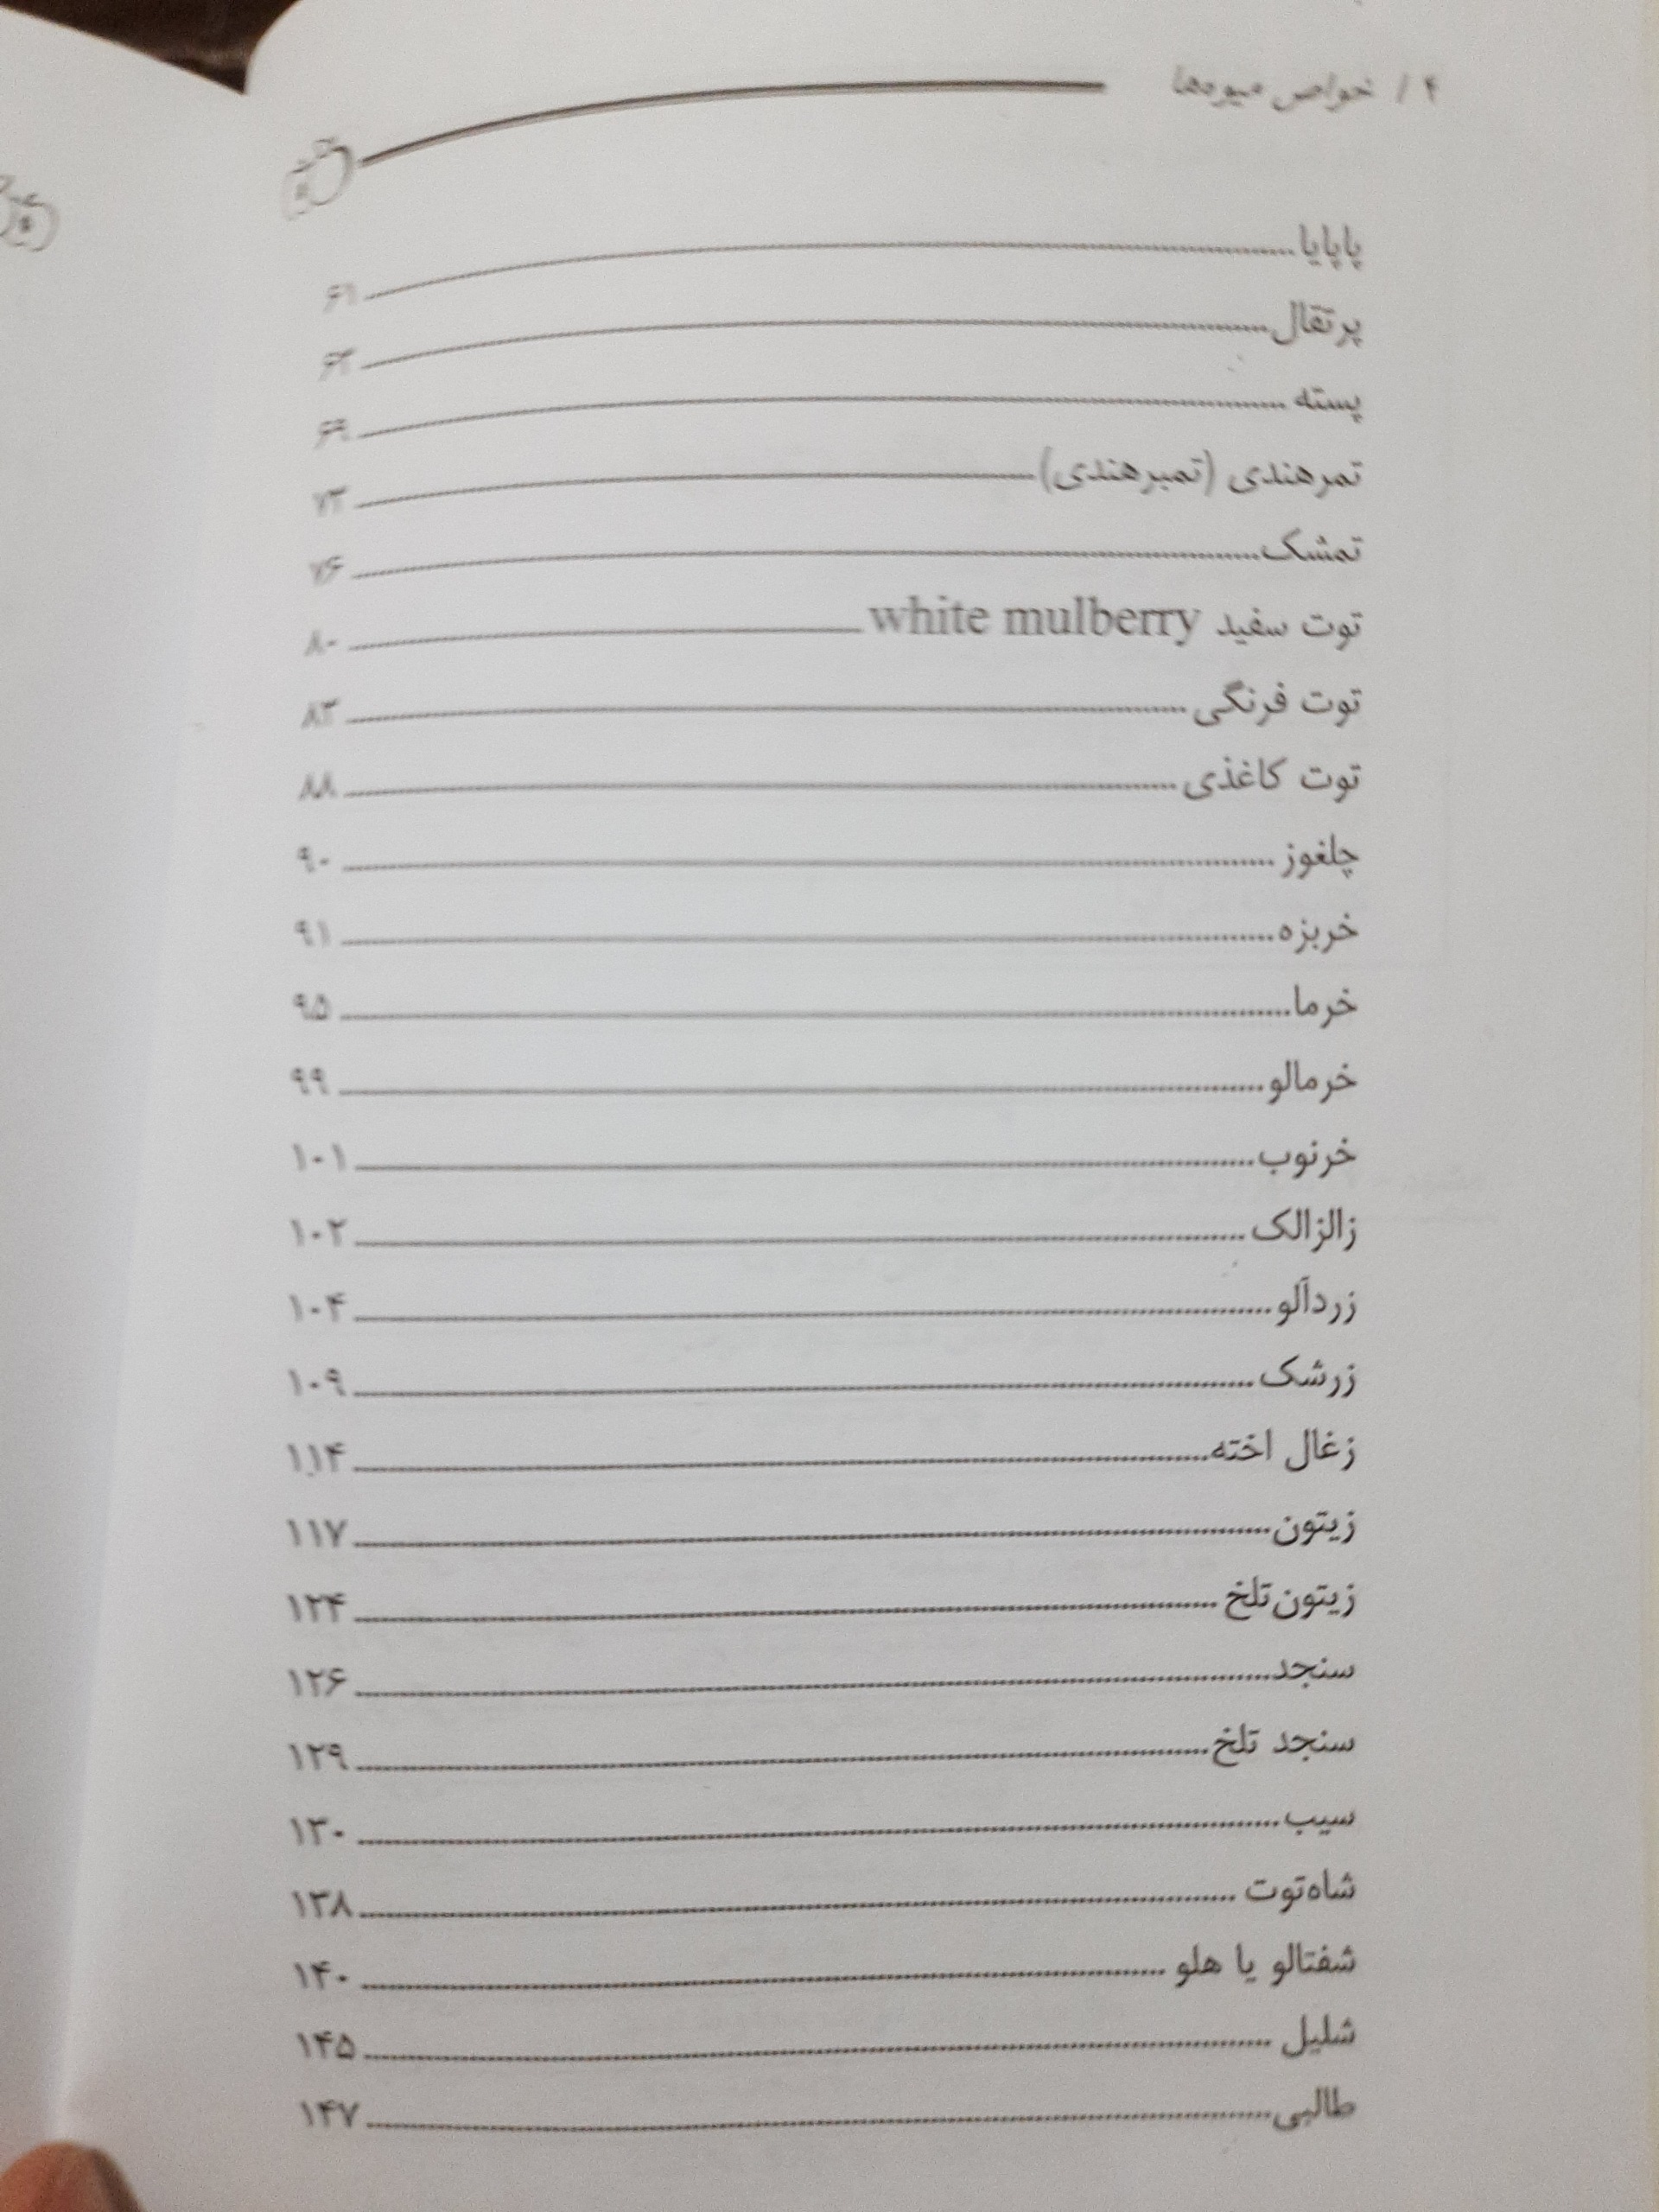 ۴ / خواص میوه‌ها
پاپایا ۶۱
پرتقال ۶۴
پسته ۶۹
تمرهندی (تمبرهندی) ۷۳
تمشک ۷۶
توت سفید white mulberry ۸۰
توت فرنگی ۸۳
توت کاغذی ۸۸
چلغوز ۹۰
خربزه ۹۱
خرما ۹۵
خرمالو ۹۹
خرنوب ۱۰۱
زالزالک ۱۰۲
زردآلو ۱۰۴
زرشک ۱۰۹
زغال اخته ۱۱۴
زیتون ۱۱۷
زیتون تلخ ۱۲۴
سنجد ۱۲۶
سنجد تلخ ۱۲۹
سیب ۱۳۰
شاه‌توت ۱۳۸
شفتالو یا هلو ۱۴۰
شلیل ۱۴۵
طالبی ۱۴۷